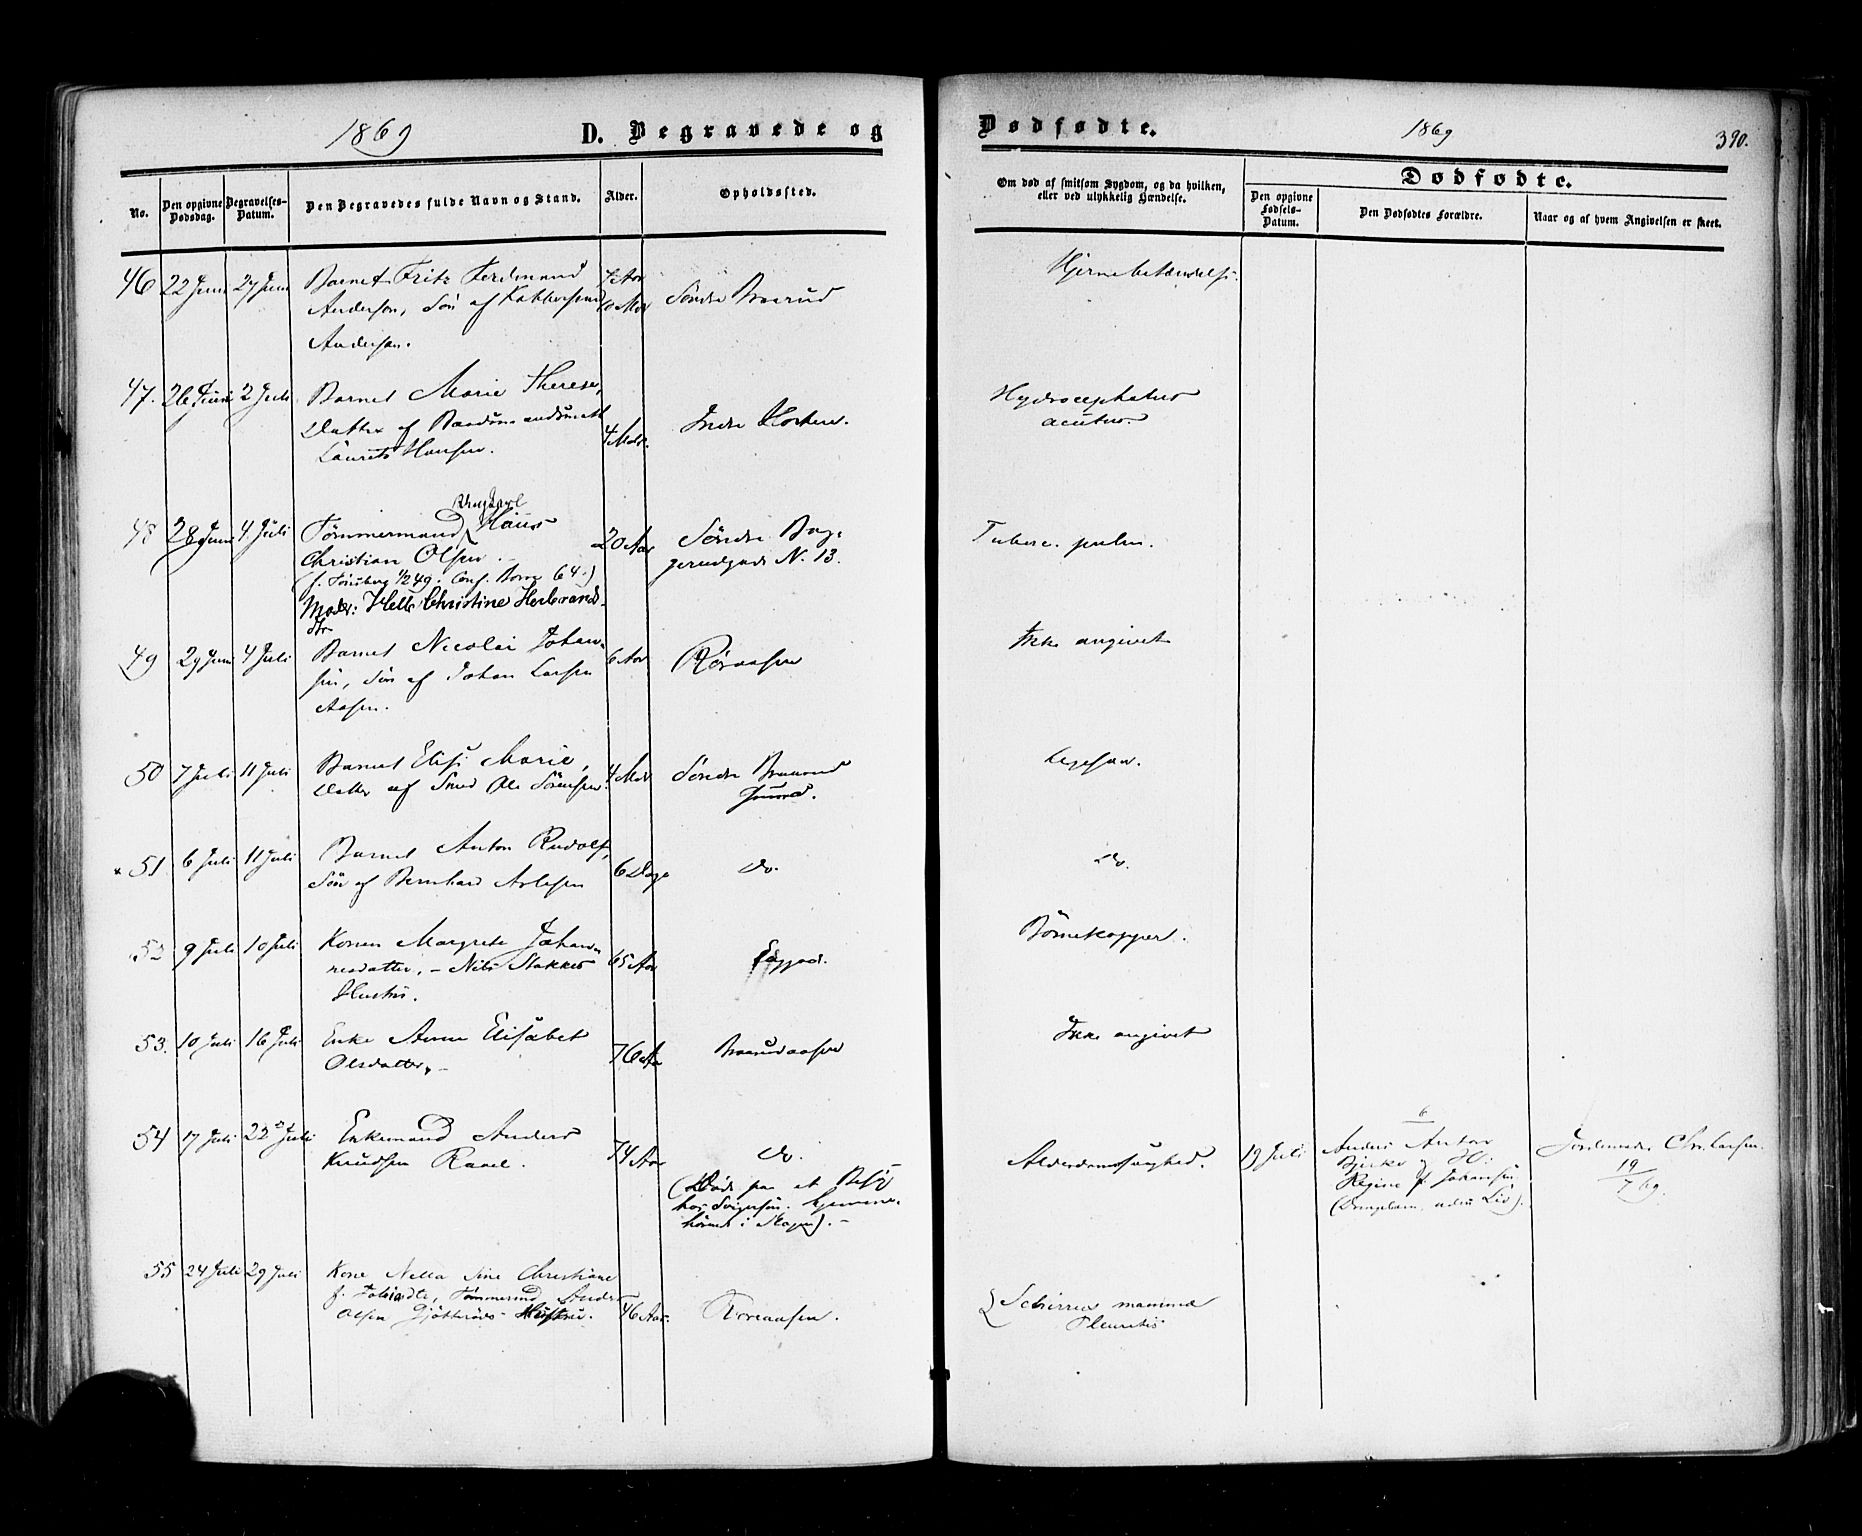 1869 D. Begravede og Dødfødte. 1869 390.
No.
Den opgivne Dødsdag.
Begravelses-Datum.
Den Begravedes fulde Navn og Stand.
Alder.
Opholdssted.
Om død af smitsom Sygdom, og da hvilken,
eller ved ulykkelig Hændelse.
Dødfødte.
Den opgivne Fødsels-Datum.
Den Dødfødtes Forældre.
Naar og af hvem Angivelsen er skeet.
46 22 Juni 27 Juni Barnet Fritz Ferdinand
Andersen, Søn af
Andersen.
Søndre Braarud
Hjernebetændelse.
47. 26 Juni 2 Juli Barnet Marie Therese,
Datter af
Lauritz Hansen.
4 Mdr.
Indre Horten.
Hydrocephalus
acutus.
Ungkarl
48 28 Juni 4 Juli Tømmermand Hans
Christian Olsen.
(f. Tønsberg 1/2 49. Conf. Borre 64.)
Moder: Helle Christine Herbrands-
dtr
20 Aar
Søndre Bag-
gerudgade N. 13.
Tuberc. pulm.
49 29 Juni 4 Juli Barnet Nicolai Johan-
sen, Søn af Johan Larsen
Aasen.
6 Aar
Røraasen
Ikke angivet
50 7 Juli 11 Juli Barnet Elise Marie,
Datter af Smed Ole Sørensen.
4 Mdr
Søndre Braarud
Ligesaa.
51 6 Juli 11 Juli Barnet Anton Rudolf,
Søn af Bernhard
6 Dage
do.
do.
52 9 Juli 10 Juli Konen Margrete Johan-
nesdatter, - Nils Stokkes
Hustru.
65 Aar
Børnekopper.
53. 10 Juli 16 Juli Enke Anne Elisabet
Olsdatter. -
76 Aar
Braarudaasen
Ikke angivet
54 17 Juli 22 Juli Enkemand Anders
Knudsen
74 Aar
do.
(Døde paa et Besøg
hos Svigersøn. Hjemme-
hørende i Skogen). -
Alderdomssvaghed.
6
19 Juli
Anders Anton
Bjerke og H:
Regine f. Johansen
(Drengebarn, uden Liv).
Jordemoder Chr. Larsen
19/7 69.
55 24 Juli 29 Juli Kone Nella Sine Christiane
f. Tobiasdtr, Tømmermd Anders
Olsen Hustru.
46 Aar.
Røraasen.
{ Schirrus mamma
Pleuritis